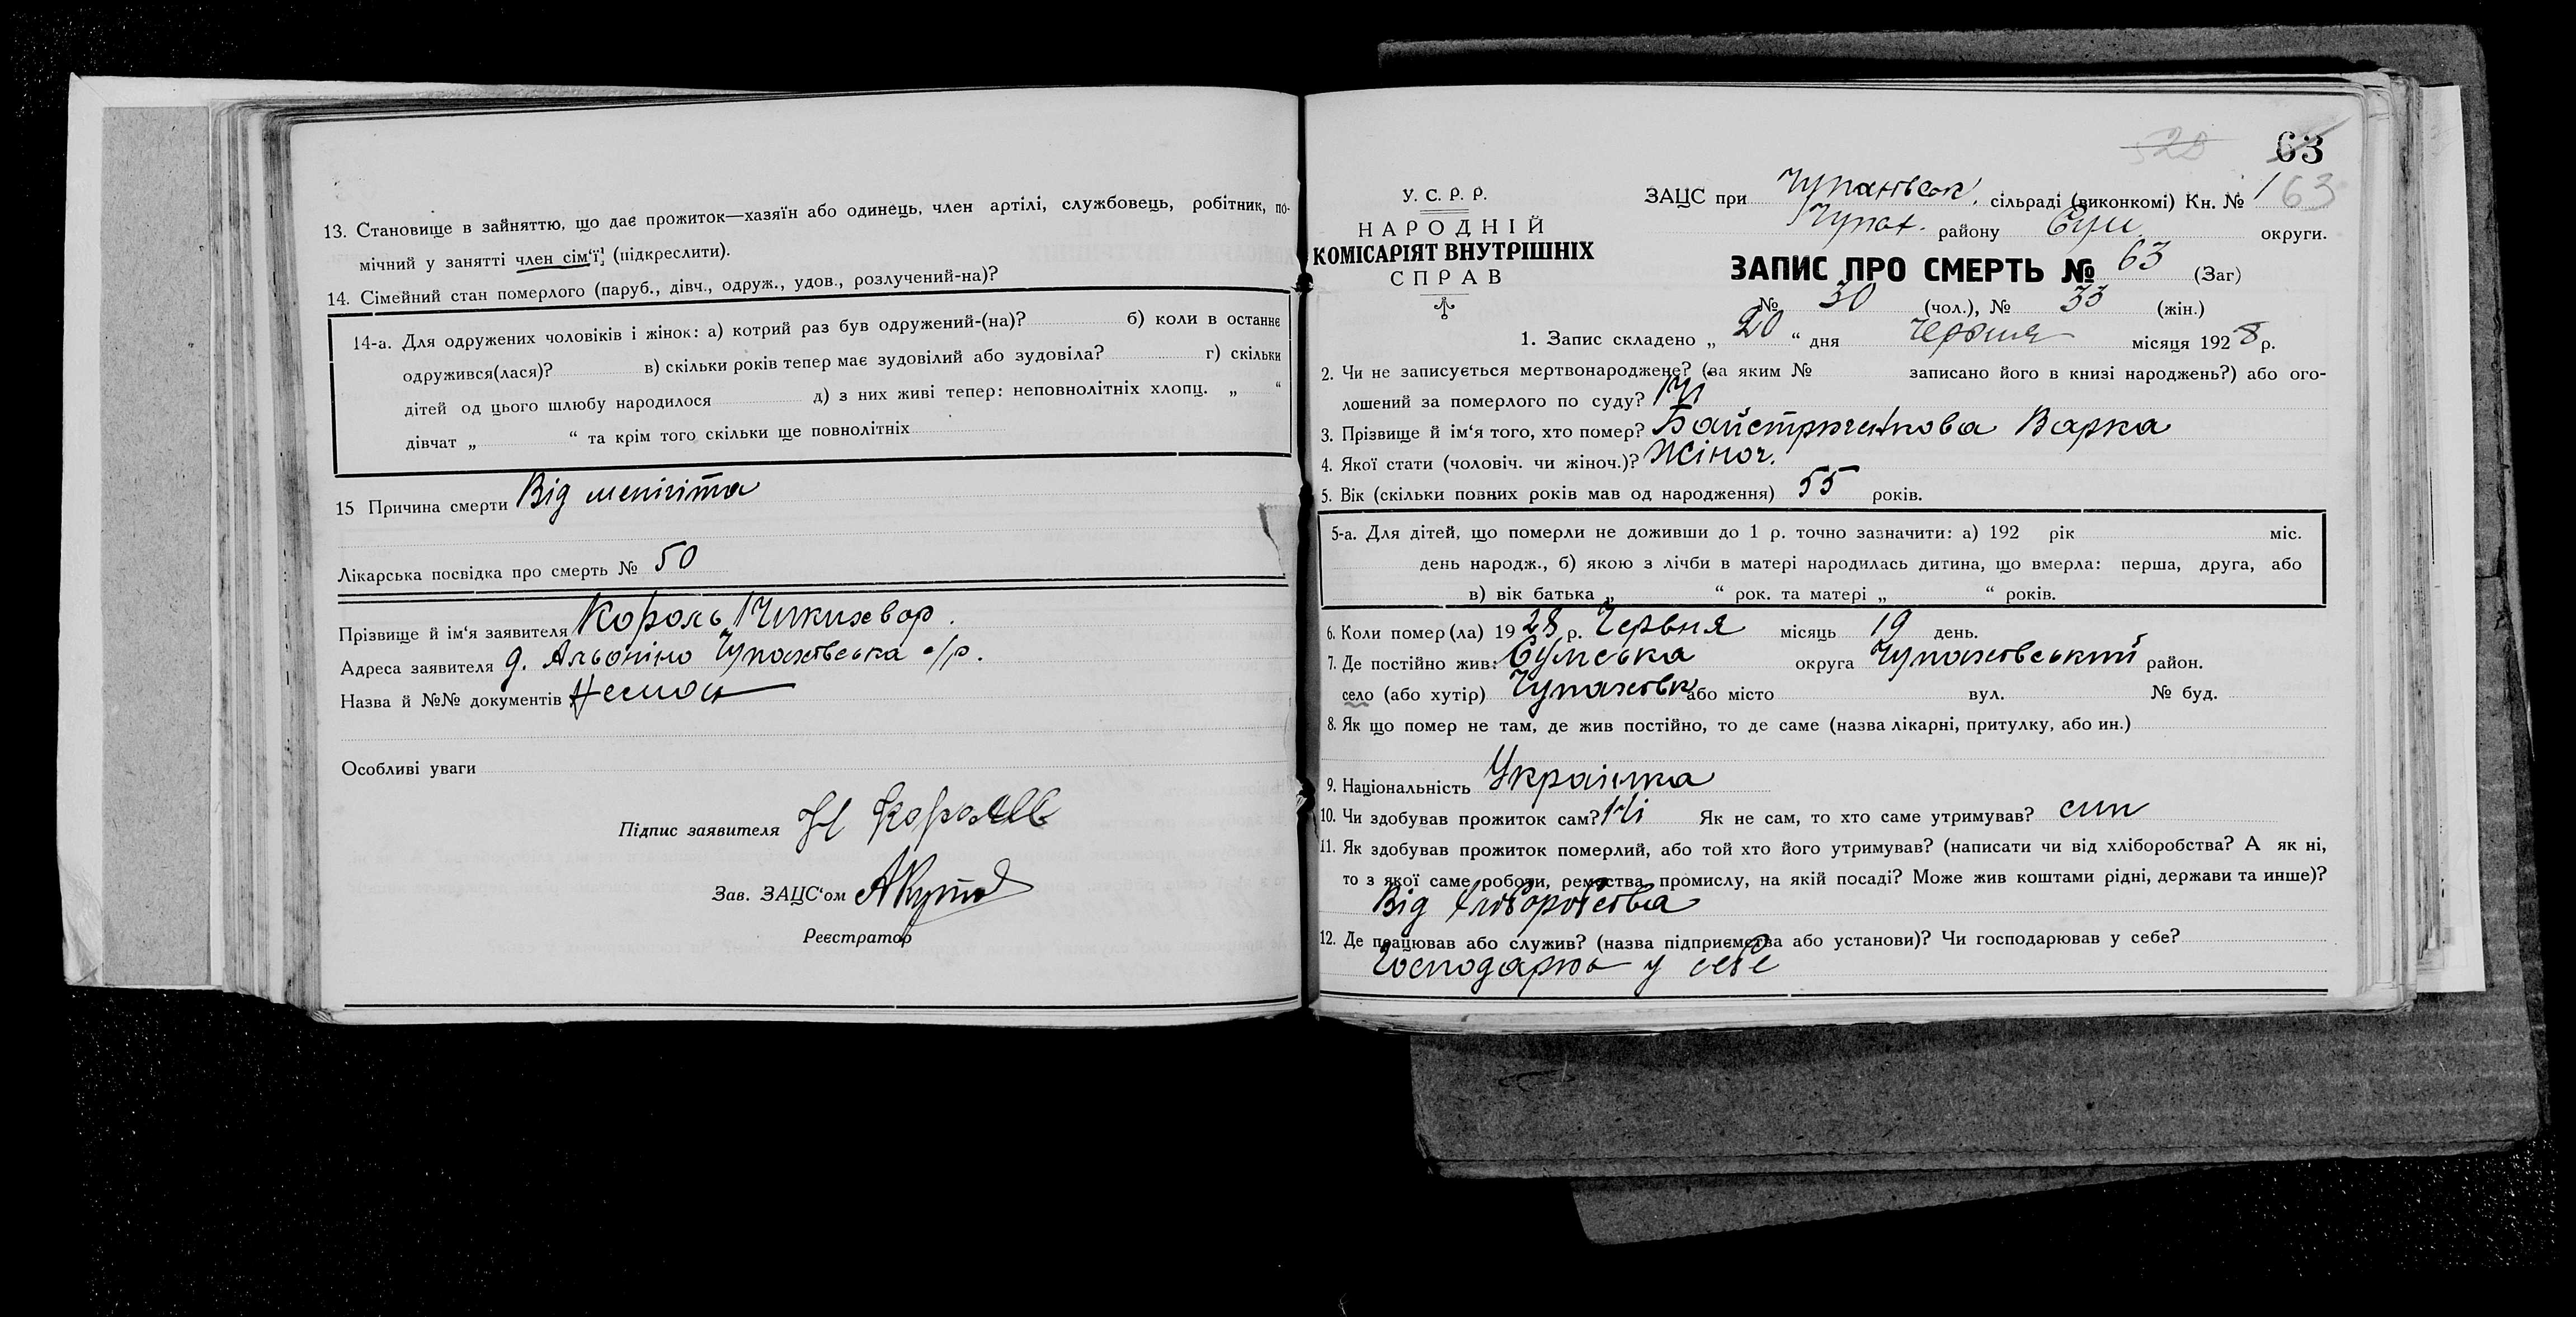 13. Становище в зайняттю, що дає прожиток—хазяїн або одинець, член артілі, службовець, робітник, по-
мічний у занятті член сім'ї (підкреслити).
14. Сімейний стан померлого (паруб., дівч., одруж., удов., розлучений-на)?
14-а. Для одружених чоловіків і жінок: а) котрий раз був одружений-(на)? б) коли в останнє
одружився(лася)? в) скільки років тепер має зудовілий або зудовіла? г) скільки
дітей од цього шлюбу народилося д) з них живі тепер: неповнолітніх хлопц. „ “
дівчат „ “ та крім того скільки ще повнолітніх
15 Причина смерти Від менігіта
Лікарська посвідка про смерть № 50
Прізвище й ім'я заявителя Король Никихвор.
Адреса заявителя Чупахівська с/р.
Назва й №№ документів Немає
Особливі уваги
Підпис заявителя Н Король
Зав. ЗАЦС'ом
Реєстратор
528
63
У. С. Р. Р.
НАРОДНІЙ
КОМІСАРІЯТ ВНУТРІШНІХ
СПРАВ
ЗАЦС при Чупахівськ. сільраді (виконкомі) Кн. № 1 63
Чупах. району Сум. округи.
ЗАПИС ПРО СМЕРТЬ № 63 (Заг)
№ 30 (чол.), № 33 (жін.)
1. Запис складено „ 20 “ дня Червня місяця 1928 р.
2. Чи не записується мертвонароджене? (за яким № записано його в книзі народжень?) або ого-
лошений за померлого по суду? Ні
3. Прізвище й ім'я того, хто помер? Байстрюченкова Варка
4. Якої стати (чоловіч. чи жіноч.)? Жіноч.
5. Вік (скільки повних років мав од народження) 55 років.
5-а. Для дітей, що померли не доживши до 1 р. точно зазначити: а) 192 рік міс.
день народж., б) якою з лічби в матері народилась дитина, що вмерла: перша, друга, або
в) вік батька „ “ рок. та матері „ “ років.
6. Коли помер(ла) 1928 р. Червня місяць 19 день.
7. Де постійно жив: Сумська округа Чупахівський район.
село (або хутір) Чупахівк або місто вул. № буд.
8. Як що помер не там, де жив постійно, то де саме (назва лікарні, притулку, або ин.)
9. Національність Українка
10. Чи здобував прожиток сам? Ні Як не сам, то хто саме утримував? син
11. Як здобував прожиток померлий, або той хто його утримував? (написати чи від хліборобства? А як ні,
то з якої саме роботи, ремества, промислу, на якій посаді? Може жив коштами рідні, держави та инше)?
Від хліборобства
12. Де працював або служив? (назва підприємства або установи)? Чи господарював у себе?
Господарює у себе